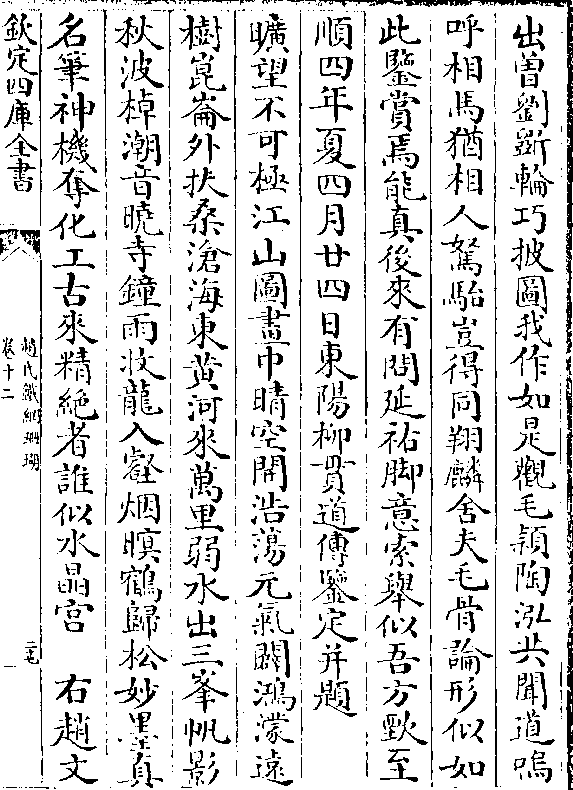 出曽劉斲輪巧披圖我作如是觀毛穎陶泓共聞道嗚
呼相馬猶相人駑駘豈得同翔麟舍夫毛骨論形似如
此鑒賞焉能真後來有問延祐脚意索舉似吾方歅至
順四年夏四月廿四日東陽柳貫道傳鑒定并題
曠望不可極江山圖畫中晴空開浩蕩元氣闢鴻濛遠
樹崑崙外扶桑滄海東黄河來萬里弱水出三峯帆影
秋波棹潮音曉寺鐘雨收龍入壑烟暝鶴歸松妙墨真
名筆神機奪化工古來精絶者誰似水晶宫　右趙文
欽定四庫全書
趙氏鐵網珊瑚
卷十二